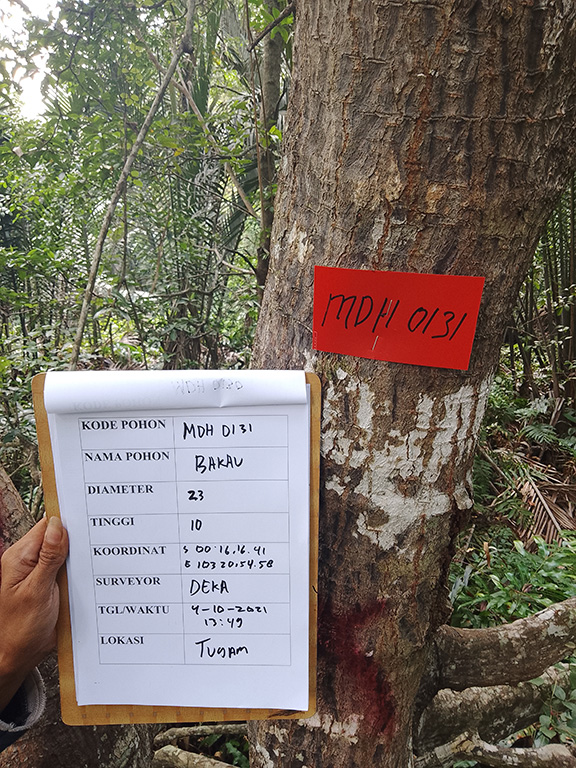 MDH 0131
KODE POHON MDH 0131
NAMA POHON BAKAU
DIAMETER 23
TINGGI 10
KOORDINAT S 00.16.16.41
E 103 20.54.58
SURVEYOR DEKA
TGL/WAKTU 4-10-2021
13:49
LOKASI TUGAM